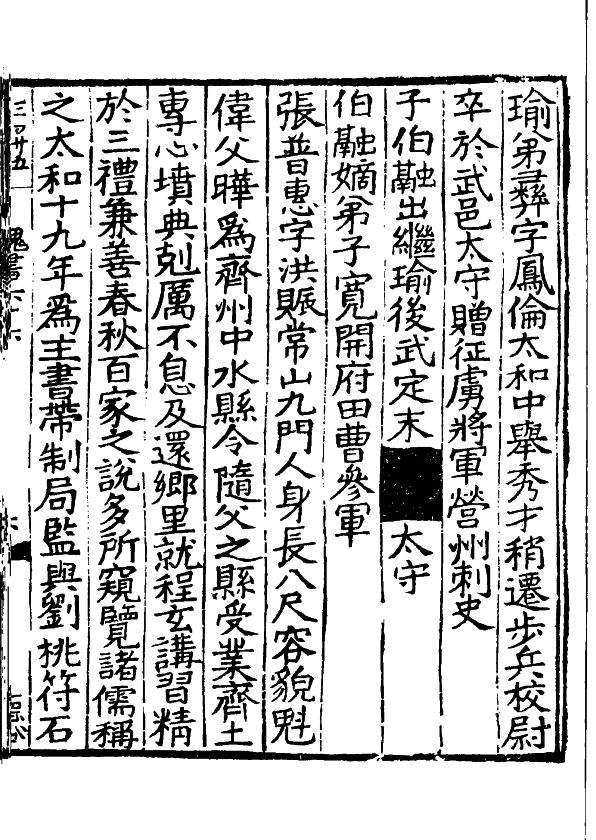 瑜弟彝字鳳倫太和中舉秀才稍遷步兵校尉
卒於武邑太守贈征虜將軍營州刺史
子伯融出繼瑜後武定末 太守
伯融嫡弟子寬開府田曹參軍
張普惠字洪賑常山九門人身長八尺容貌魁
偉父曄爲齊州中水縣令隨父之縣受業齊土
專心墳典剋厲不息及還鄉里就程玄講習精
於三禮兼善春秋百家之說多所窺覽諸儒稱
之太和十九年爲主書帶制局監與劉桃符石
三四廿五 魏書六十六